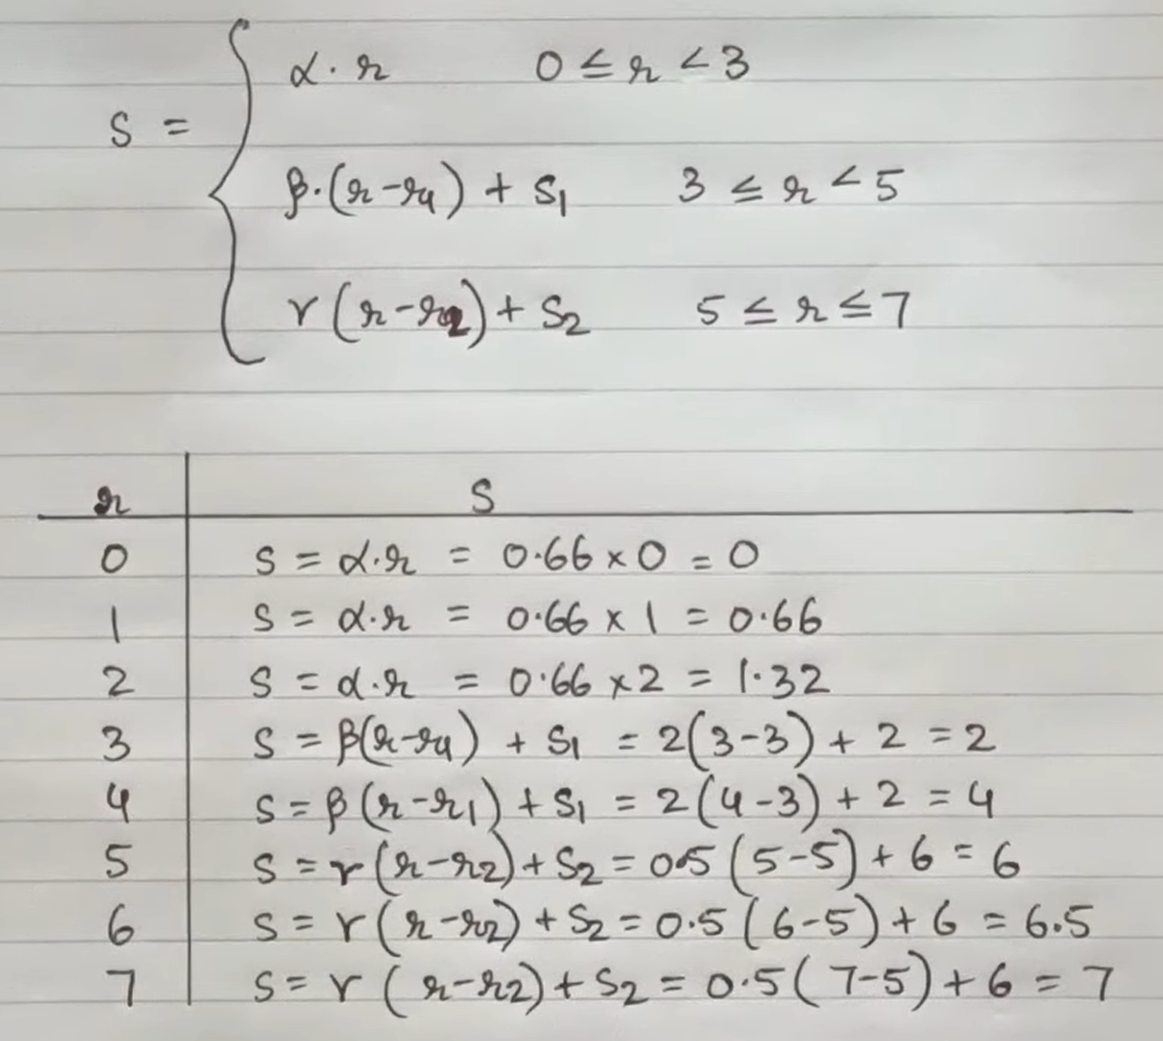 α · r 0 ≤ r < 3
S =
β·(r-r1) + S1 3 ≤ r < 5
γ(r-r2) + S2 5 ≤ r ≤ 7
r S
0 S = α·r = 0.66 × 0 = 0
1 S = α·r = 0.66 × 1 = 0.66
2 S = α·r = 0.66 × 2 = 1.32
3 S = β(r-r1) + S1 = 2(3-3) + 2 = 2
4 S = β(r-r1) + S1 = 2(4-3) + 2 = 4
5 S = γ(r-r2) + S2 = 0.5(5-5) + 6 = 6
6 S = γ(r-r2) + S2 = 0.5(6-5) + 6 = 6.5
7 S = γ(r-r2) + S2 = 0.5(7-5) + 6 = 7